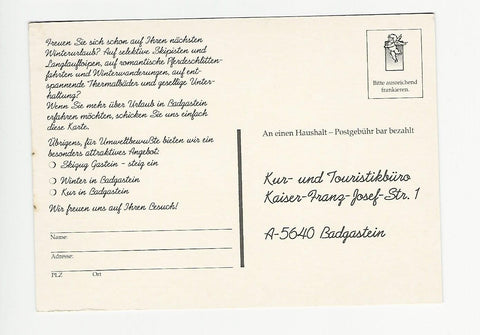 Freuen Sie sich schon auf Ihren nächsten
Winterurlaub? Auf selektive Skipisten und
Langlaufloipen, auf romantische Pferdeschlitten-
fahrten und Winterwanderungen, auf ent-
spannende Thermalbäder und gesellige Unter-
haltung?
Wenn Sie mehr über Urlaub in Badgastein
erfahren möchten, schicken Sie uns einfach
diese Karte.
Übrigens, für Umweltbewußte bieten wir ein
besonders attraktives Angebot:
Skizug Gastein - steig ein
Winter in Badgastein
Kur in Badgastein
Wir freuen uns auf Ihren Besuch!
Name:
Adresse:
PLZ Ort
Bitte ausreichend
frankieren.
An einen Haushalt – Postgebühr bar bezahlt
Kur- und Touristikbüro
Kaiser-Franz-Josef-Str. 1
A-5640 Badgastein